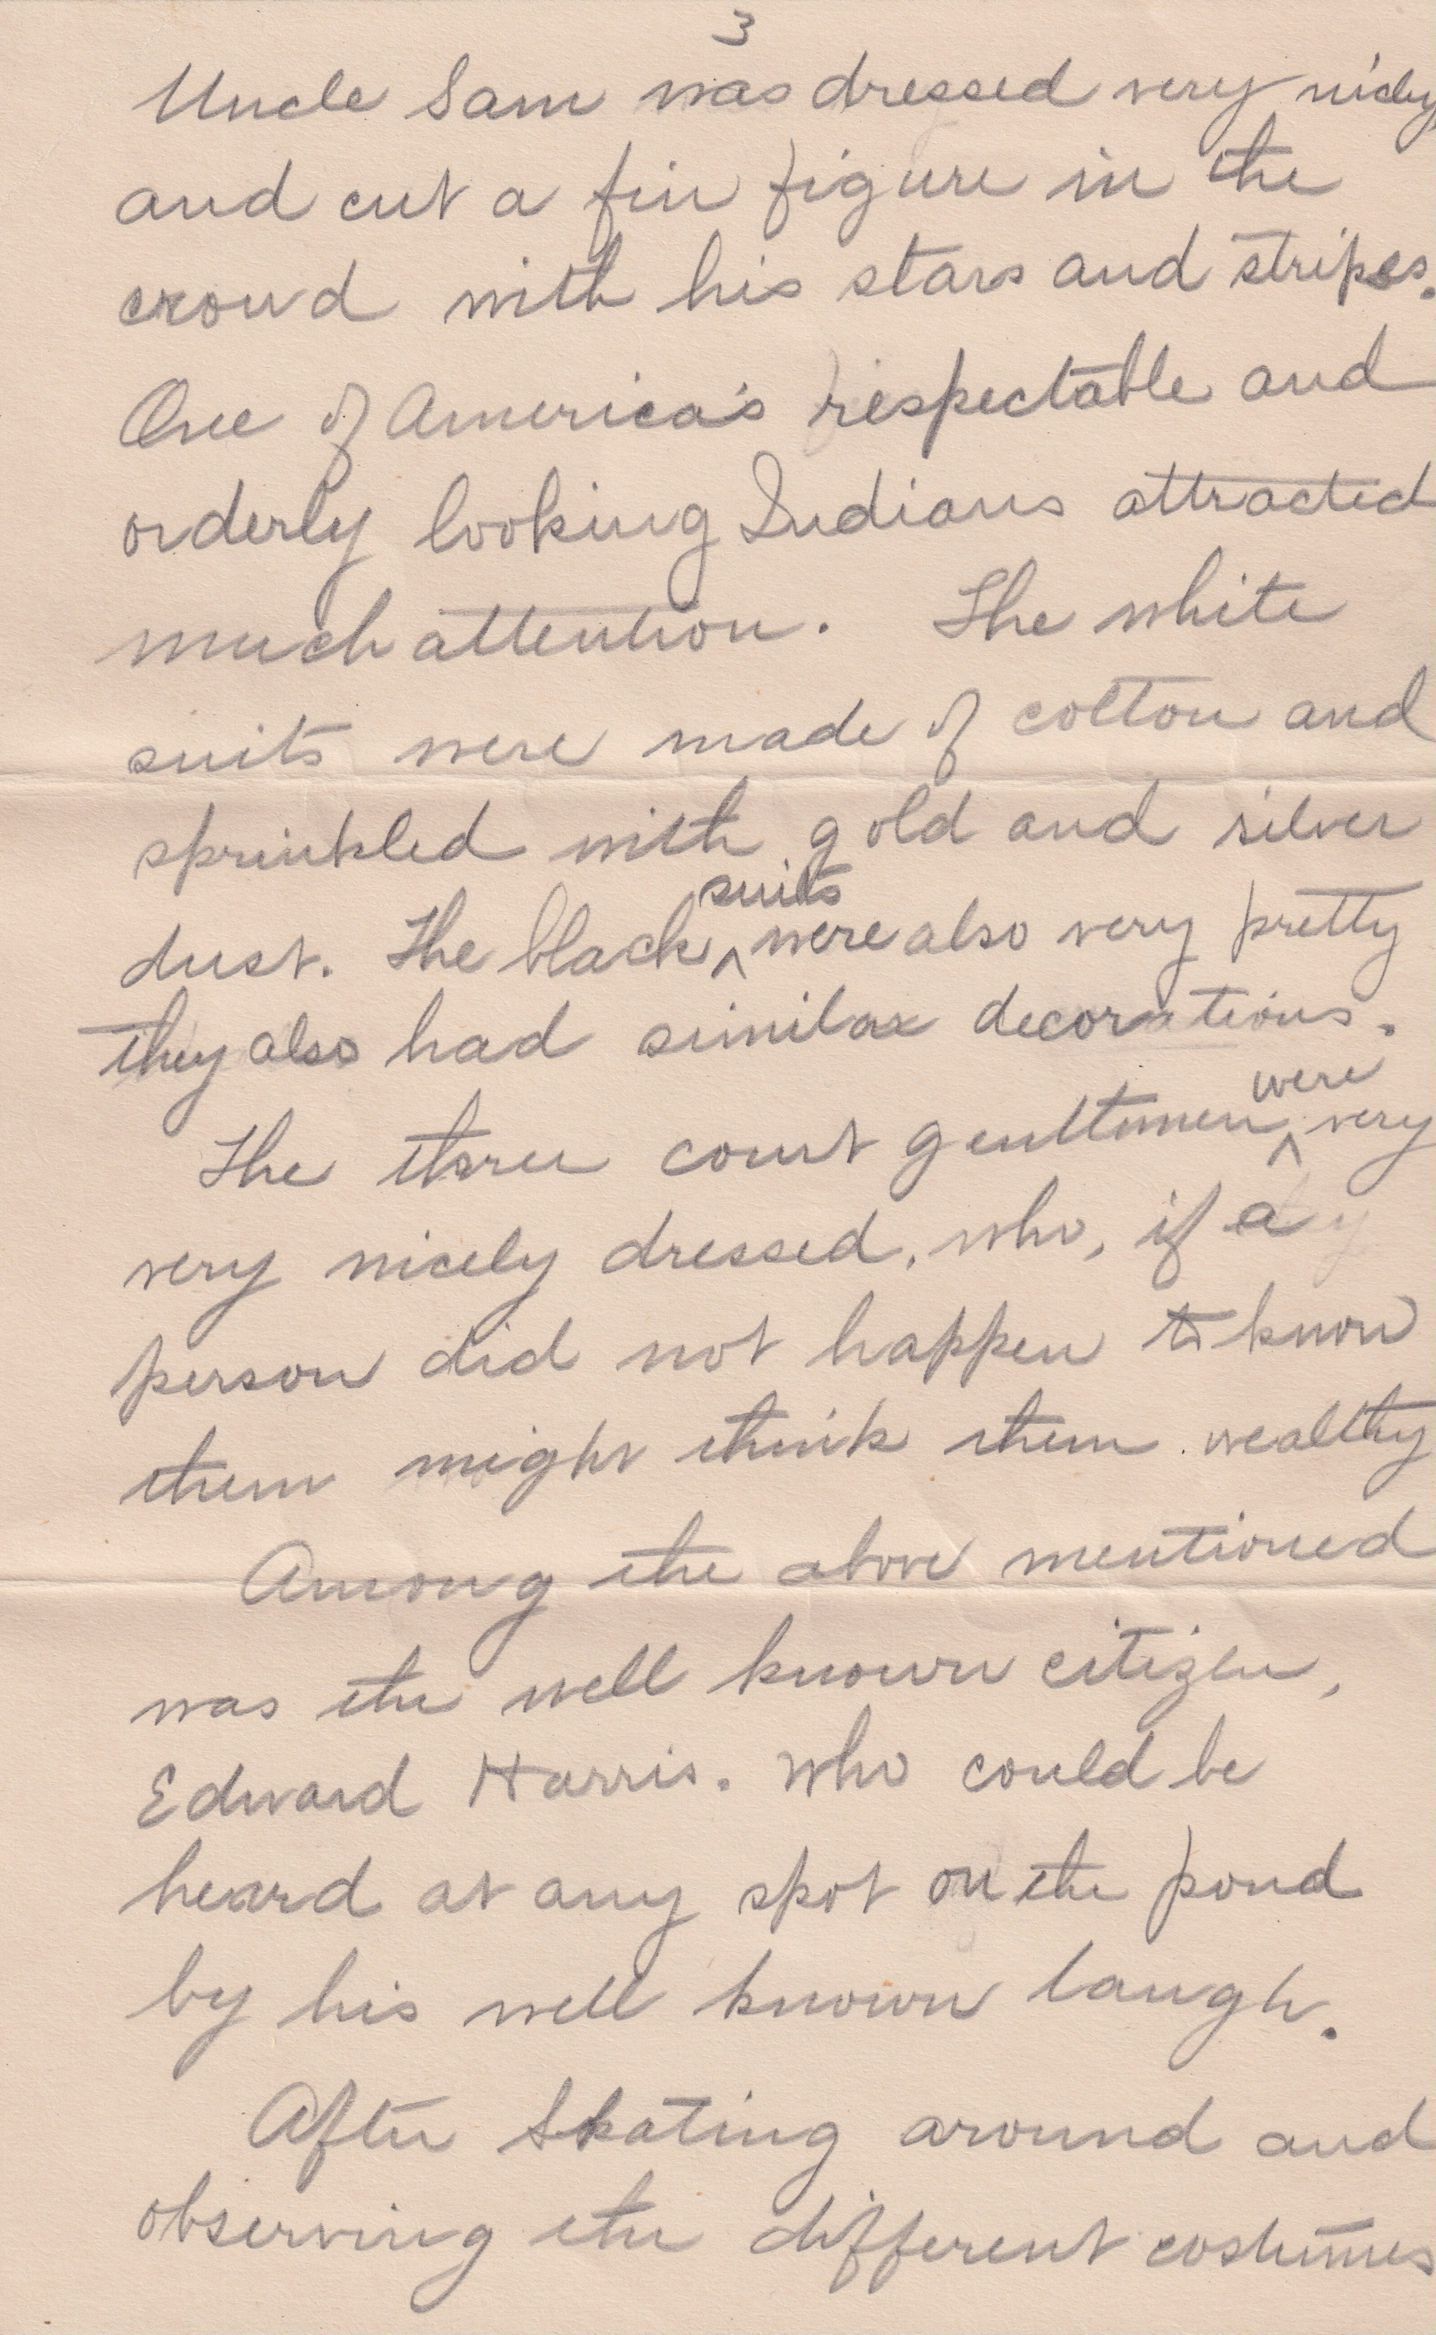 3
Uncle Sam was dressed very nicely
and cut a fine figure in the
crowd with his stars and stripes.
One of America's respectable and
orderly looking Indians attracted
much attention. The white
suits were made of cotton and
sprinkled with gold and silver
suits
dust. The black ^ were also very pretty
they also had similar decorations.
were
The three court gentlemen ^ very
very nicely dressed, who, if a
person did not happen to know
them might think them wealthy
Among the above mentioned
was the well known citizen,
Edward Harris. Who could be
heard at any spot on the pond
by his well known laugh.
After skating around and
observing the different costumes